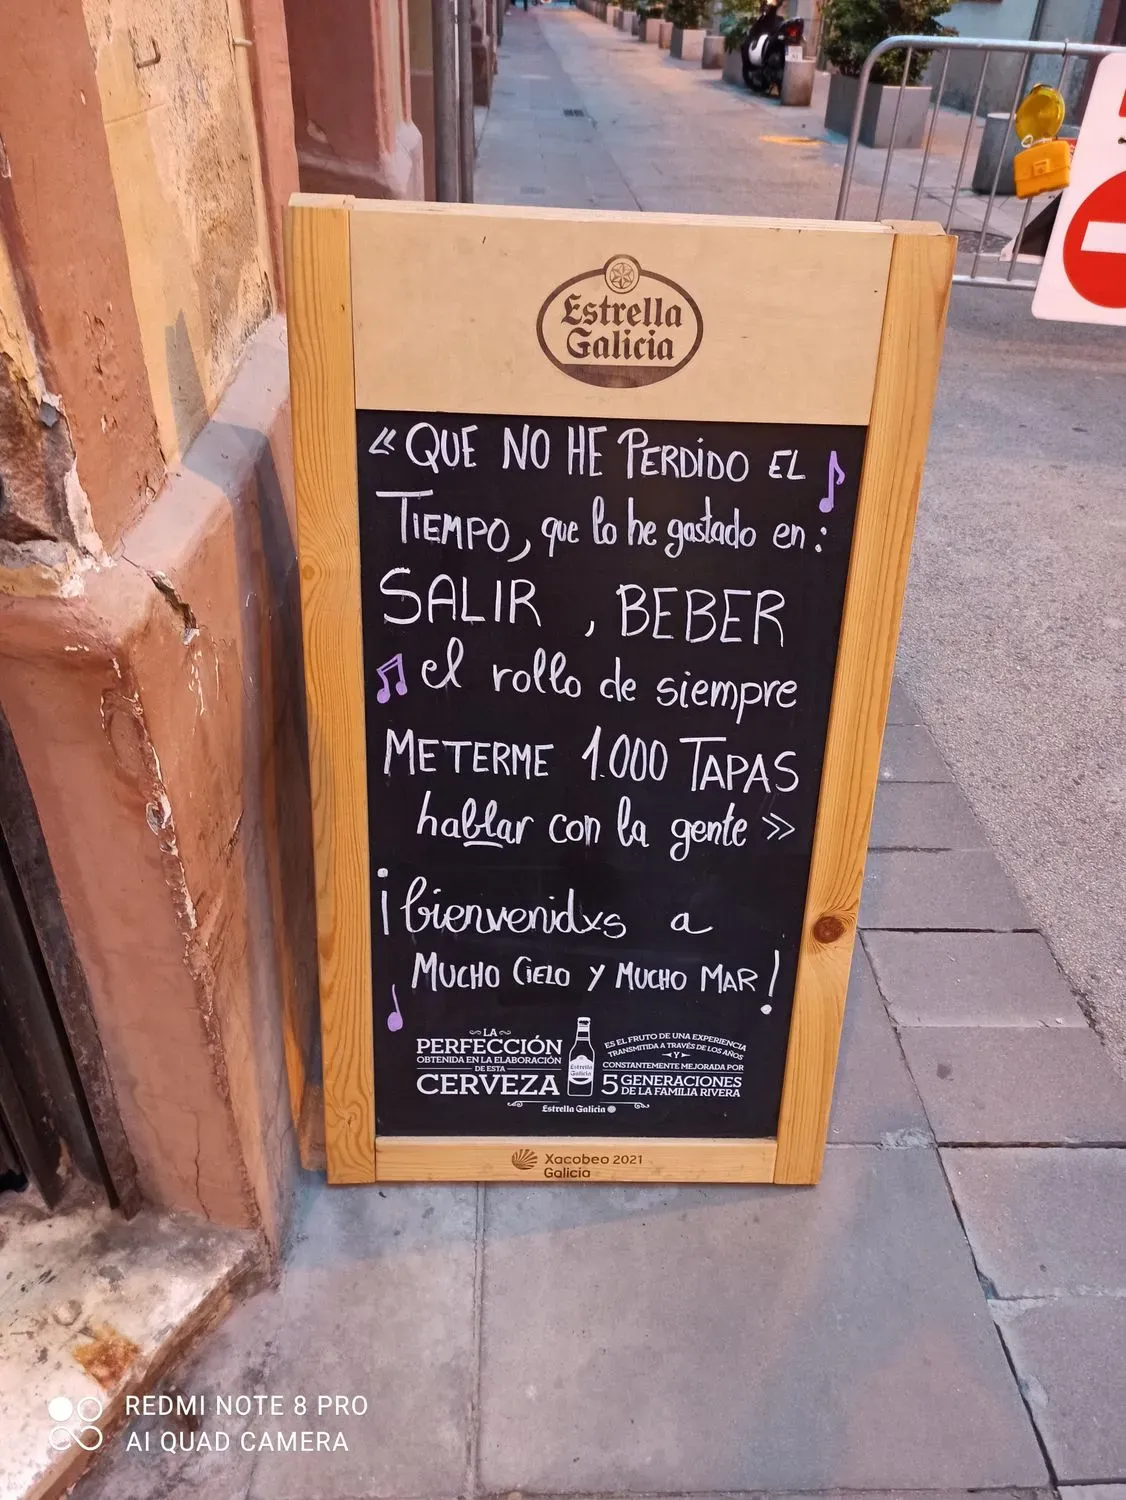 Estrella
Galicia
«QUE NO HE PERDIDO EL
TIEMPO, que lo he gastado en:
SALIR , BEBER
el rollo de siempre
METERME 1.000 TAPAS
hablar con la gente»
¡bienvenidxs a
MUCHO CIELO Y MUCHO MAR!
LA
PERFECCIÓN
OBTENIDA EN LA ELABORACIÓN
DE ESTA
CERVEZA
Estrella
Galicia
ES EL FRUTO DE UNA EXPERIENCIA
TRANSMITIDA A TRAVÉS DE LOS AÑOS
Y
CONSTANTEMENTE MEJORADA POR
5 GENERACIONES
DE LA FAMILIA RIVERA
Estrella Galicia
Xacobeo 2021
Galicia
REDMI NOTE 8 PRO
AI QUAD CAMERA